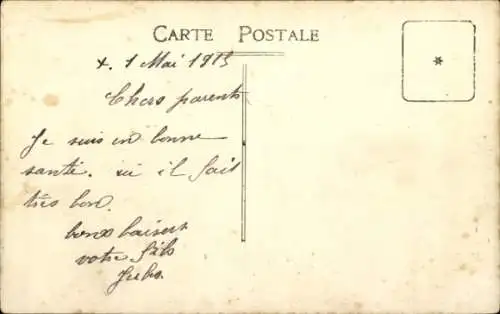 CARTE POSTALE
x. 1 Mai 1915
Chers parents
Je suis en bonne
santé. ici il fait
très bon.
bons baisers
votre fils
Jules.